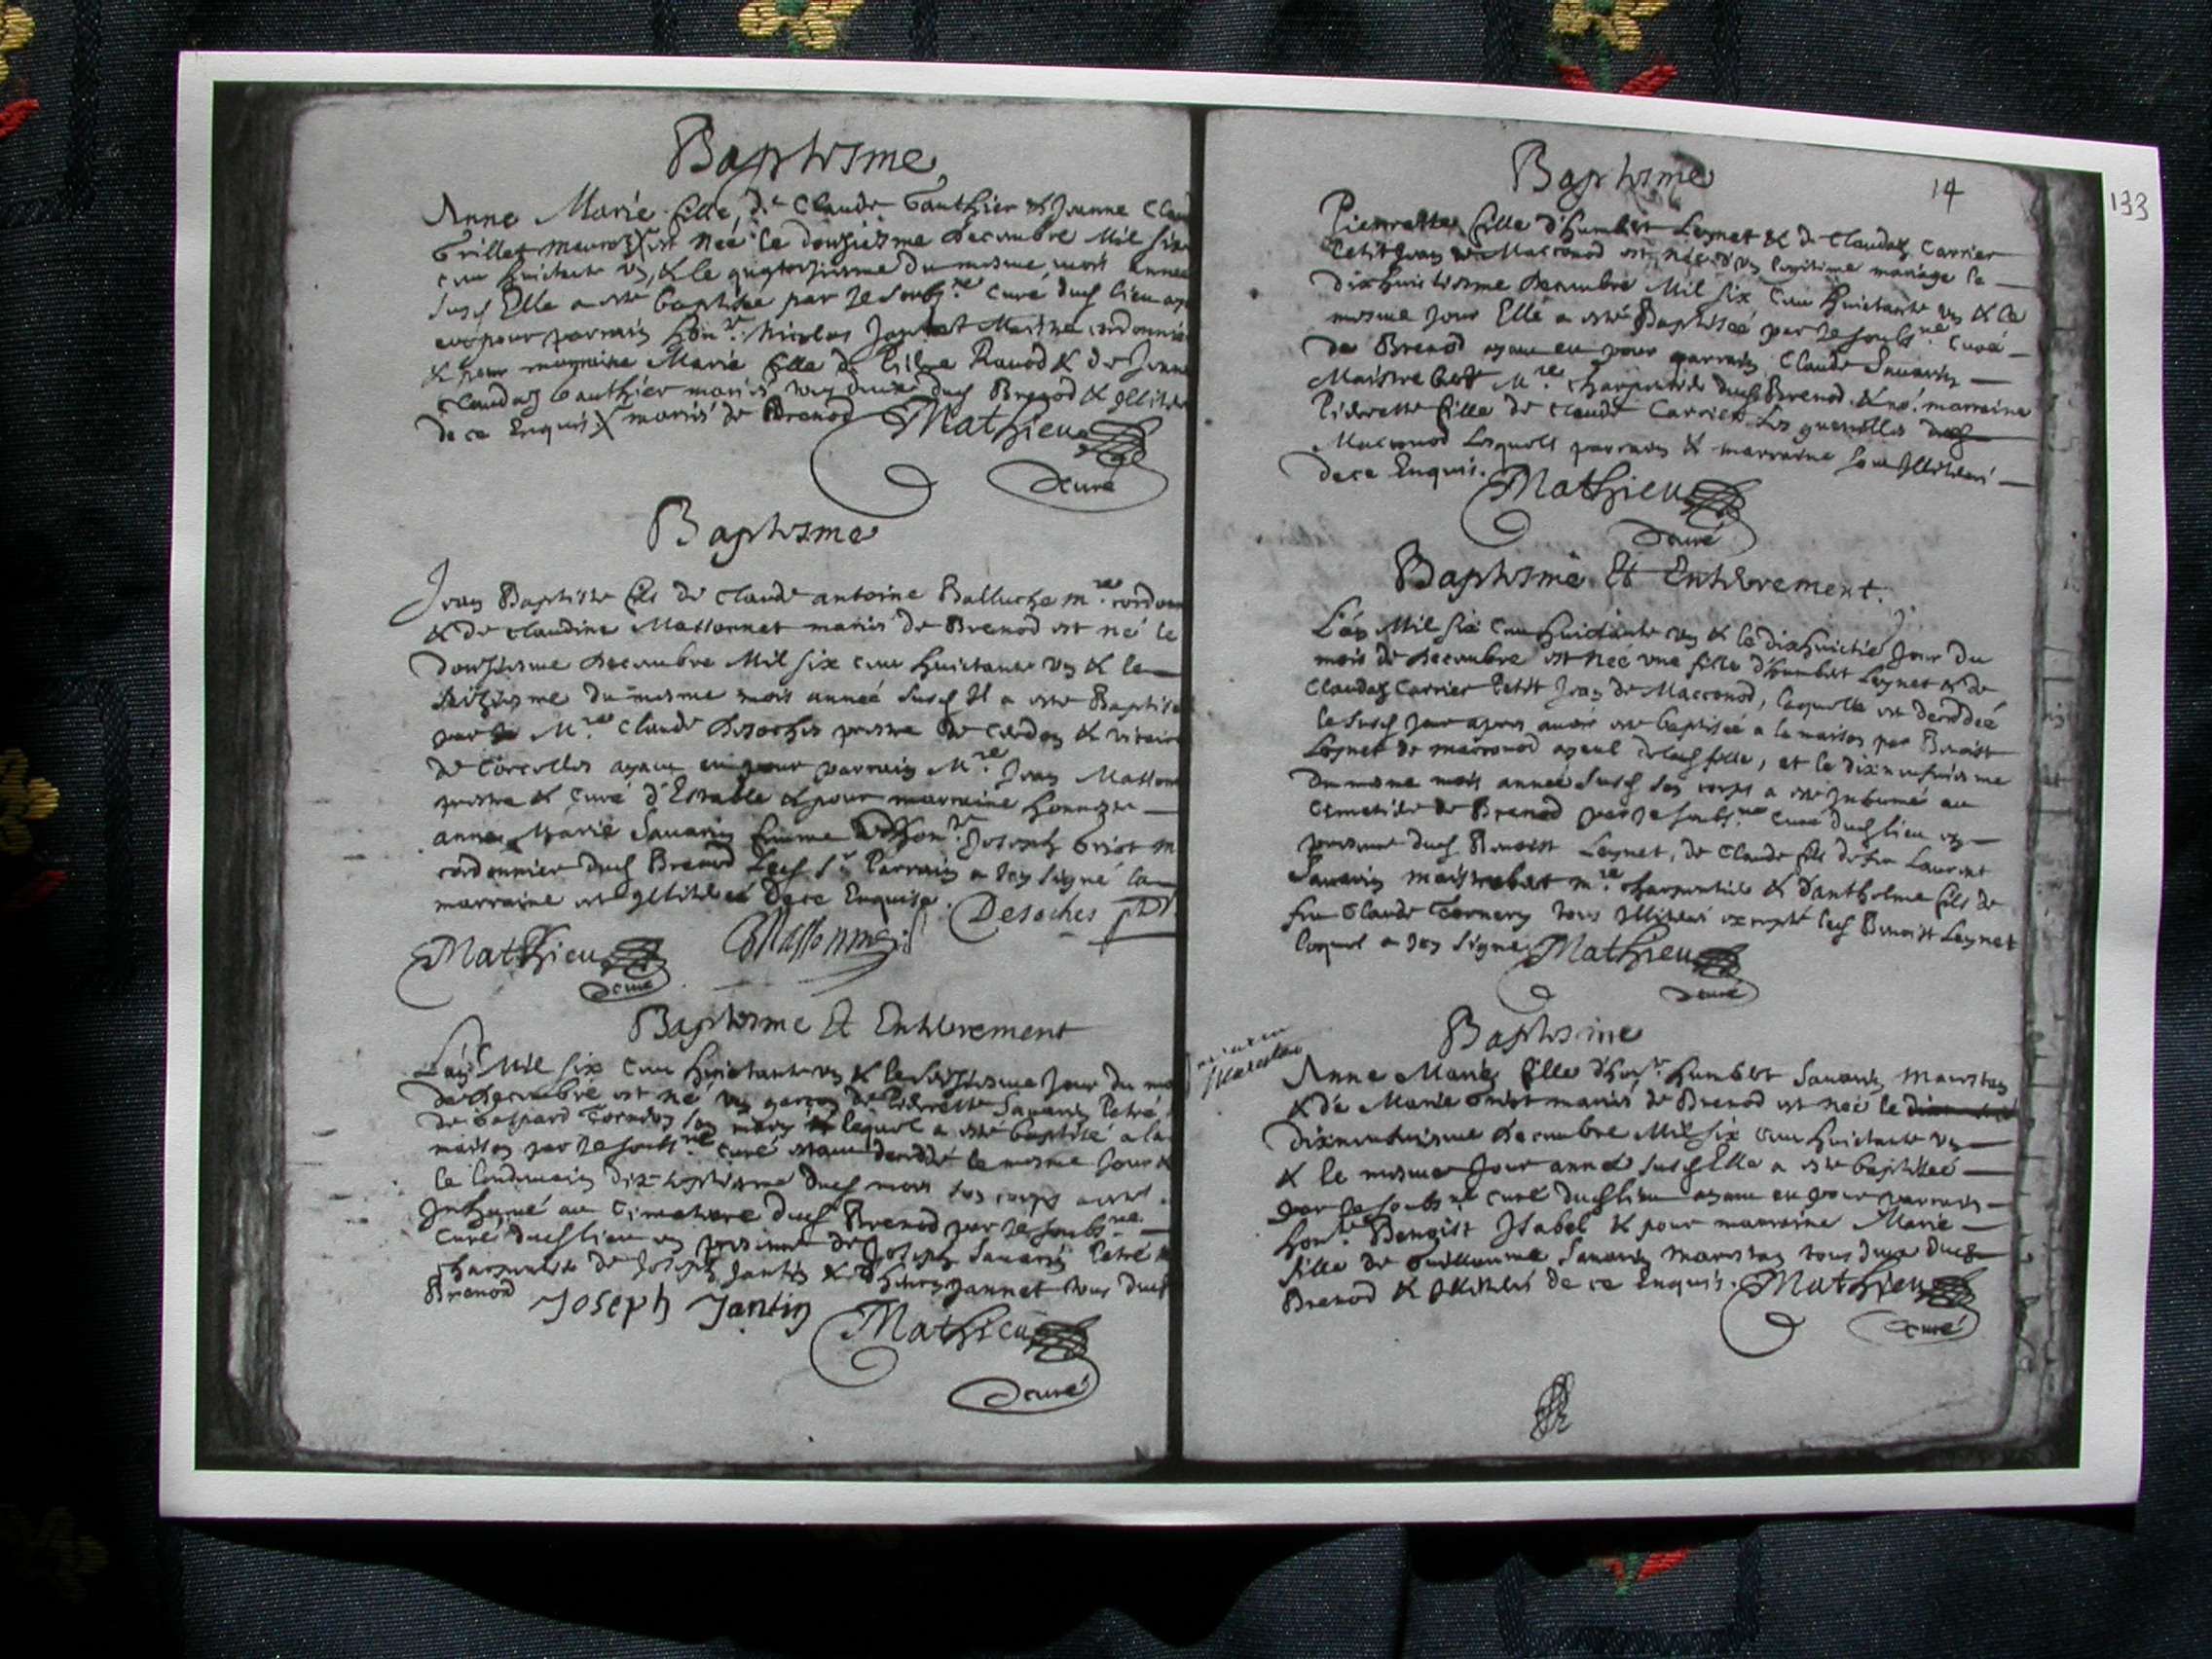 Baptisme
Anne Marie fille de Claude Gauthier & Jeanne Clau
Grillet mariez est née le douziesme decembre Mil six
cen huictante un, & le quatorziesme du mesme mois année
susd Elle a esté baptisée par Je soubs.né Curé dud lieu
eu pour parrain hon.re Nicolas Jannet Maistre cordonnier
& pour marraine Marie fille de Ravod & de Jeanne
Claudaz Gauthier mariés tous deux dud Brenod & illitere
de ce Enquis. mariés de Brenod Mathieu
curé
Baptisme
Jean Baptiste fils de Claude antoine Balluche m.re cordonn
& de Claudine Massonnet mariés de Brenod est né le
douziesme decembre Mil six cen huictante un & le
seiziesme du mesme mois année susd Il a esté Baptisé
par M.re Claude Desoches prestre de Cerdon & vicaire
de Corcelles ayant eu pour parrain M.re Jean Masson
prestre & Curé d'Estable & pour marraine honneste
anne Marie Savarin femme d'hon.re Joseph Griot m
cordonnier dud Brenod Led S.r Parrain a soy signé la
marraine est illiterée de ce Enquise. Desoches ptre
Mathieu
curé
Baptisme Et Enterrement
L'an Mil six cen huictante un & le seiziesme Jour du mo
de decembre est né un garcon de Pierrette Savarin Petré
de Gaspard son mary lequel a esté baptisé a la
maison par Je soubs.né Curé estant decedé le mesme Jour &
le lendemain dix-septiesme dud mois son corps a esté
Inhumé au Cimetiere dud Brenod par Je soubs.né
Curé dud lieu en presence de Joseph Savarin Petré
charpentier de Joseph Jantin & d' Jannet tous dud
Brenod Joseph Jantin
Mathieu
curé
14
133
Baptisme
Pierrette fille d'humbert Leynet & de Claudaz Carrier
Petit Jean de Macconod est née d'un legitime mariage le
dixhuictiesme decembre Mil six cen huictante un & le
mesme Jour Elle a esté Baptisée par Je soubs.né Curé
de Brenod ayant eu pour parrain Claude Savarin
Maistrebert M.re charpentier dud Brenod & pr. marraine
Pierrette fille de Claude Carrier Les guenilles dud
Macconod Lesquels parrain & marraine sont Illiterés
de ce Enquis. Mathieu
curé
Baptisme Et Enterrement.
L'an Mil six cen huictante un & le dixhuictié Jour du
mois de decembre est née une fille d'humbert Leynet & de
Claudaz Carrier Petit Jean de Macconod, laquelle est decedée
le susd Jour apres avoir esté baptisée a la maison par Benoist
Leynet de macconod ayeul de lad fille, et le dixneufviesme
du mesme mois année susd son corps a esté Inhumé au
Cemetiere de Brenod par Je soubs.né Curé dud lieu en
presence dud Benoist Leynet, de Claude fils de feu Laurent
Savarin maistrebert m.re charpentier & d'antholme fils de
feu Claude Tornery tous Illiterés excepté led Benoist Leynet
lequel a soy signé Mathieu
curé
Baptisme
Anne Marie fille d'hon.re humbert Savarin Marestan
& de Marie Griot mariés de Brenod est née le
dixneufviesme decembre Mil six cen huictante un
& le mesme Jour année susd Elle a esté baptisée
par Je soubs.né Curé dud lieu ayant eu pour parrain
hon.re Benoist Isabel & pour marraine Marie
fille de Guillaume Savarin Marestan tous deux dud
Brenod & Illiterés de ce Enquis. Mathieu
curé